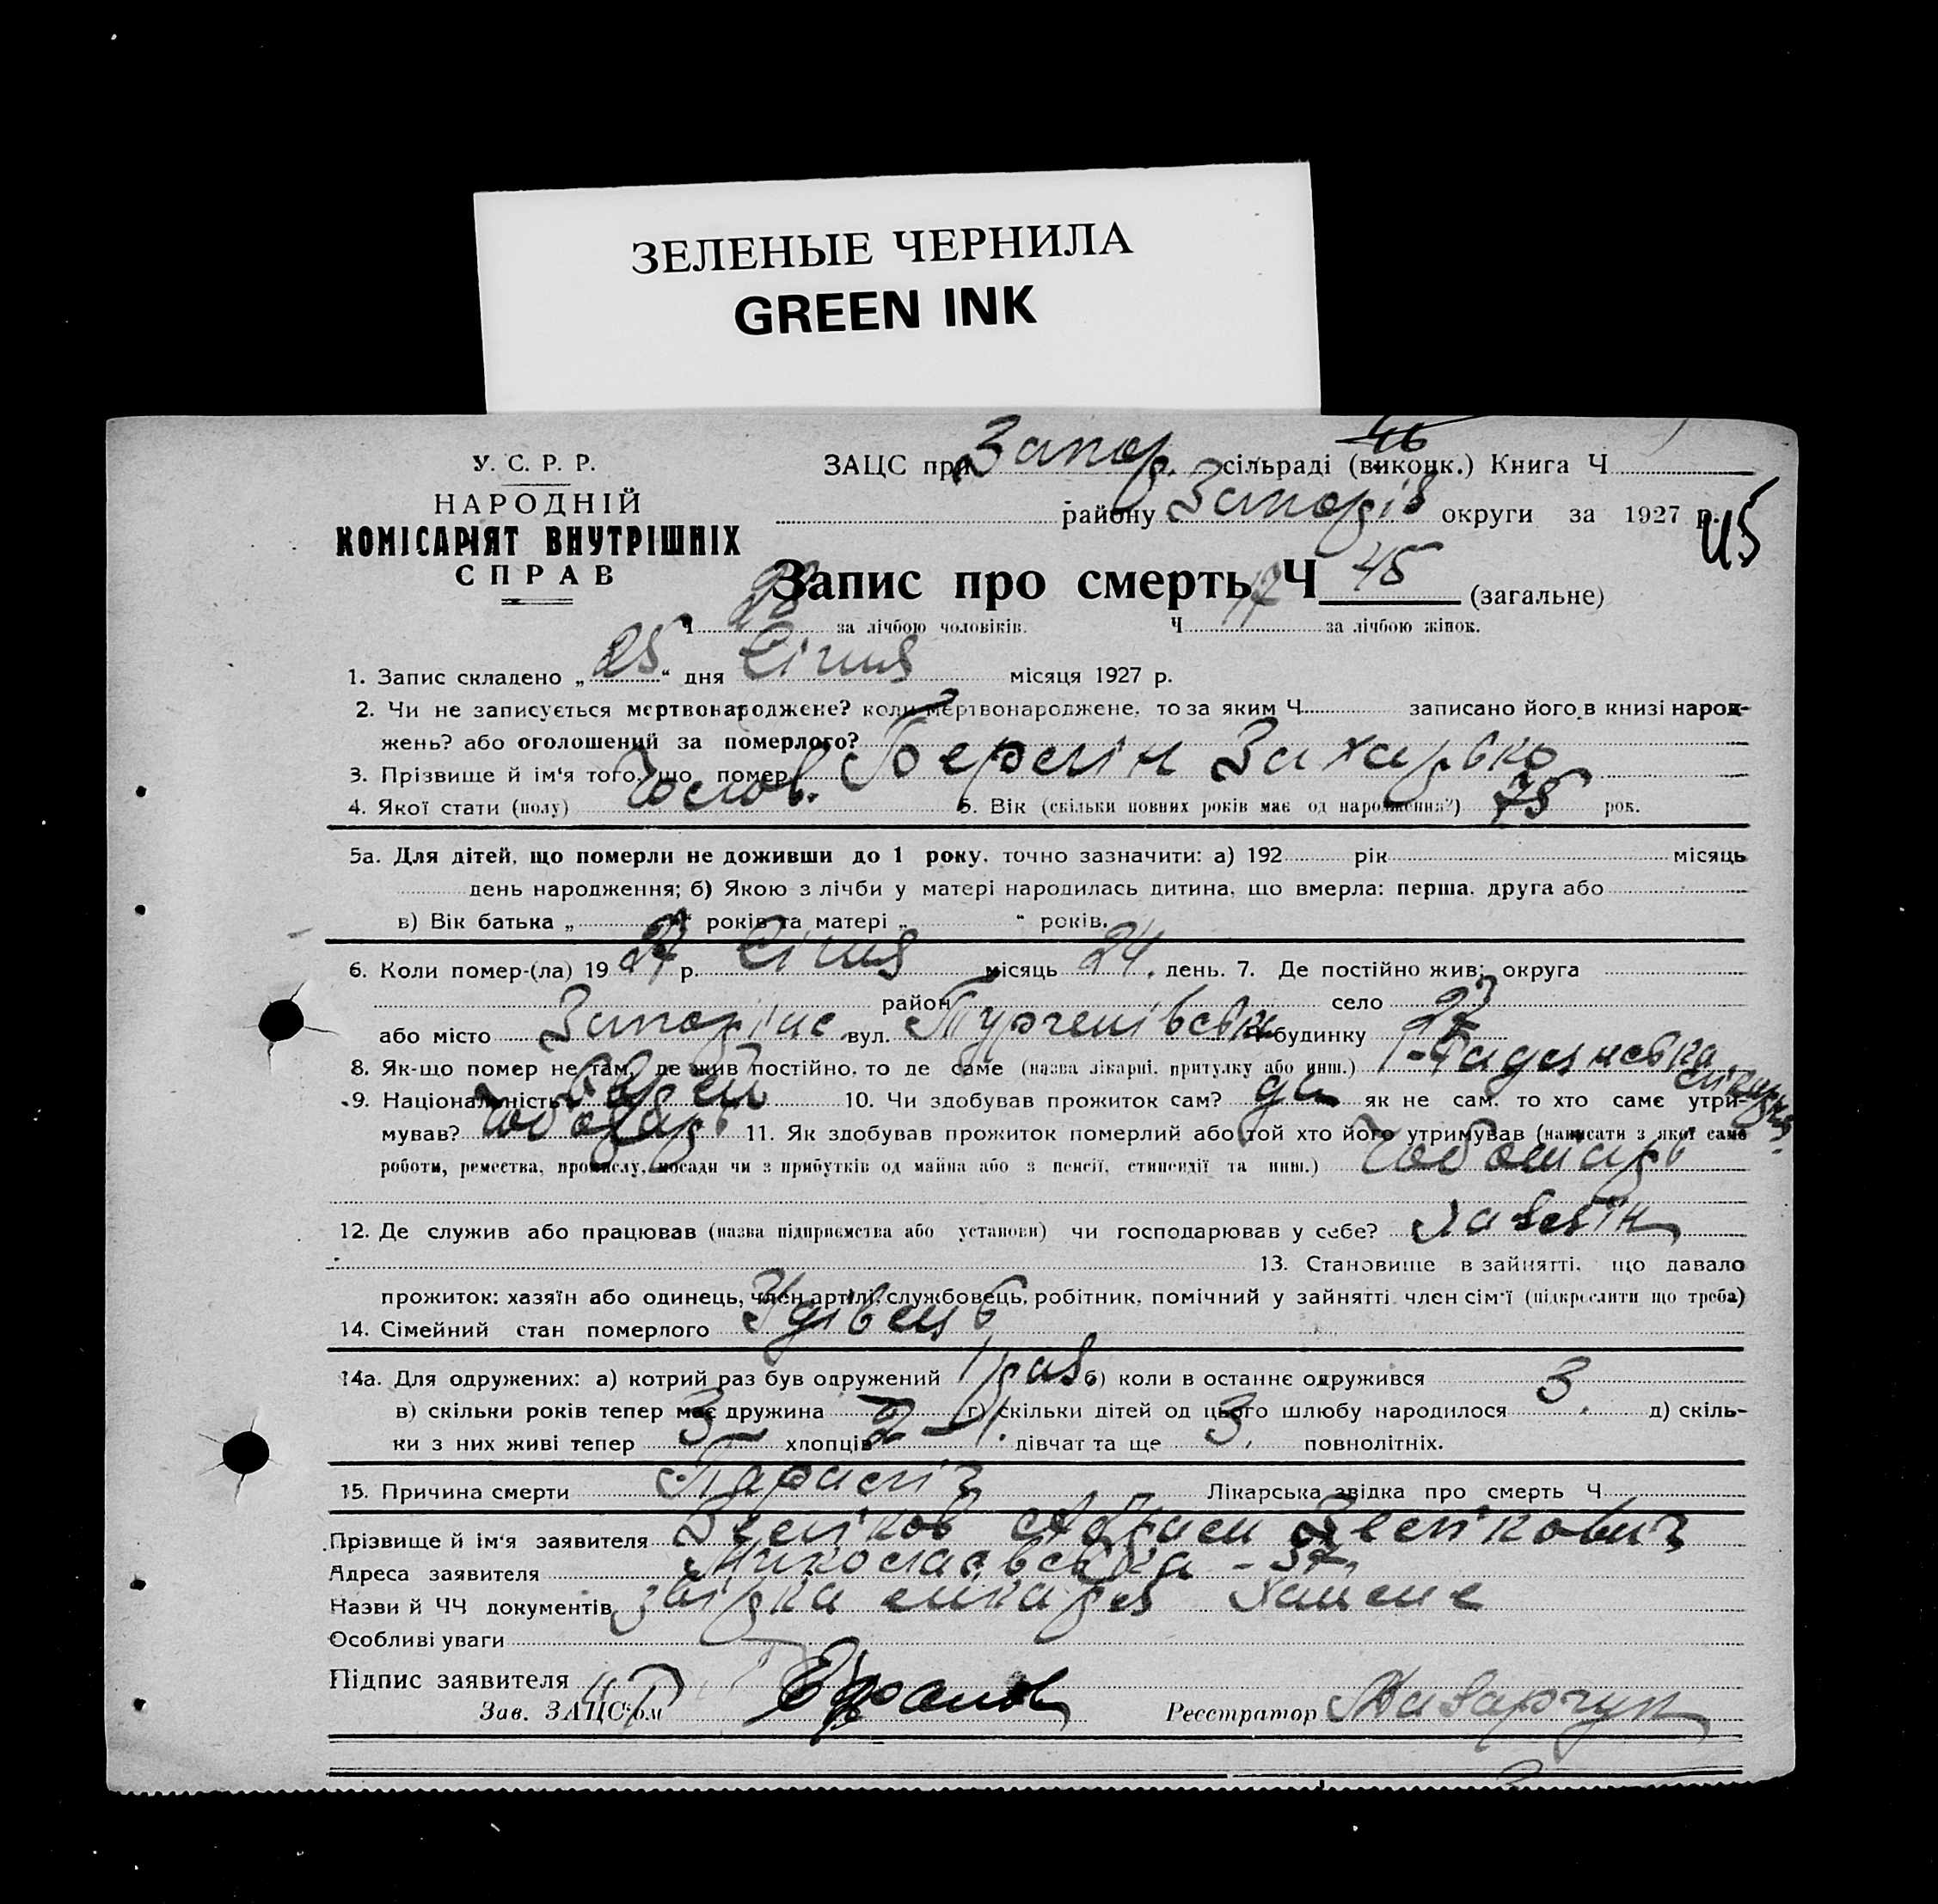 ЗЕЛЕНЫЕ ЧЕРНИЛА
GREEN INK
У. С. Р. Р.
НАРОДНІЙ
КОМІСАРІЯТ ВНУТРІШНІХ
СПРАВ
46
ЗАЦС при Запор. сільраді (виконк.) Книга Ч
району Запоріз округи за 1927 р.
45
Запис про смерть Ч 45 (загальне)
Ч 28 за лічбою чоловіків. Ч 17 за лічбою жінок.
1. Запис складено „25“ дня Січня місяця 1927 р.
2. Чи не записується мертвонароджене? коли мертвонароджене, то за яким Ч записано його в книзі народ-
жень? або оголошений за померлого?
3. Прізвище й ім'я того, що помер Берлін Захарько
4. Якої стати (полу) Чолов. 5. Вік (скільки повних років має од народження?) 75 рок.
5а. Для дітей, що померли не доживши до 1 року, точно зазначити: а) 192 рік місяць
день народження; б) Якою з лічби у матері народилась дитина, що вмерла: перша, друга або
в) Вік батька „ “ років та матері „ “ років.
6. Коли помер-(ла) 1927 р. Січня місяць 24. день. 7. Де постійно жив: округа
район село
або місто Запоріжс вул. Тургенівська будинку 23
8. Як-що помер не там, де жив постійно, то де саме (назва лікарні, притулку або инш.)
9. Національність Еврей 10. Чи здобував прожиток сам? да як не сам, то хто саме утри-
мував? Чоботарь 11. Як здобував прожиток померлий або той хто його утримував (написати з якої саме
роботи, ремества, промислу, посади чи з прибутків од майна або з пенсії, стипендії та инш.) Чоботарь
12. Де служив або працював (назва підприємства або установи) чи господарював у себе? Хазяїн
13. Становище в зайнятті, що давало
прожиток: хазяїн або одинець, член артілі, службовець, робітник, помічний у зайнятті член сім'ї (підкреслити що треба)
14. Сімейний стан померлого Удівець
14а. Для одружених: а) котрий раз був одружений 1 раз б) коли в останнє одружився
в) скільки років тепер має дружина г) скільки дітей од цього шлюбу народилося 3. д) скіль-
ки з них живі тепер 3 хлопців 2 – 1. дівчат та ще 3. повнолітніх.
15. Причина смерти Лікарська звідка про смерть Ч
Прізвище й ім'я заявителя
Адреса заявителя Миколаєвська - 37.
Назви й ЧЧ документів
Особливі уваги
Підпис заявителя
Зав. ЗАЦС'ом Реєстратор